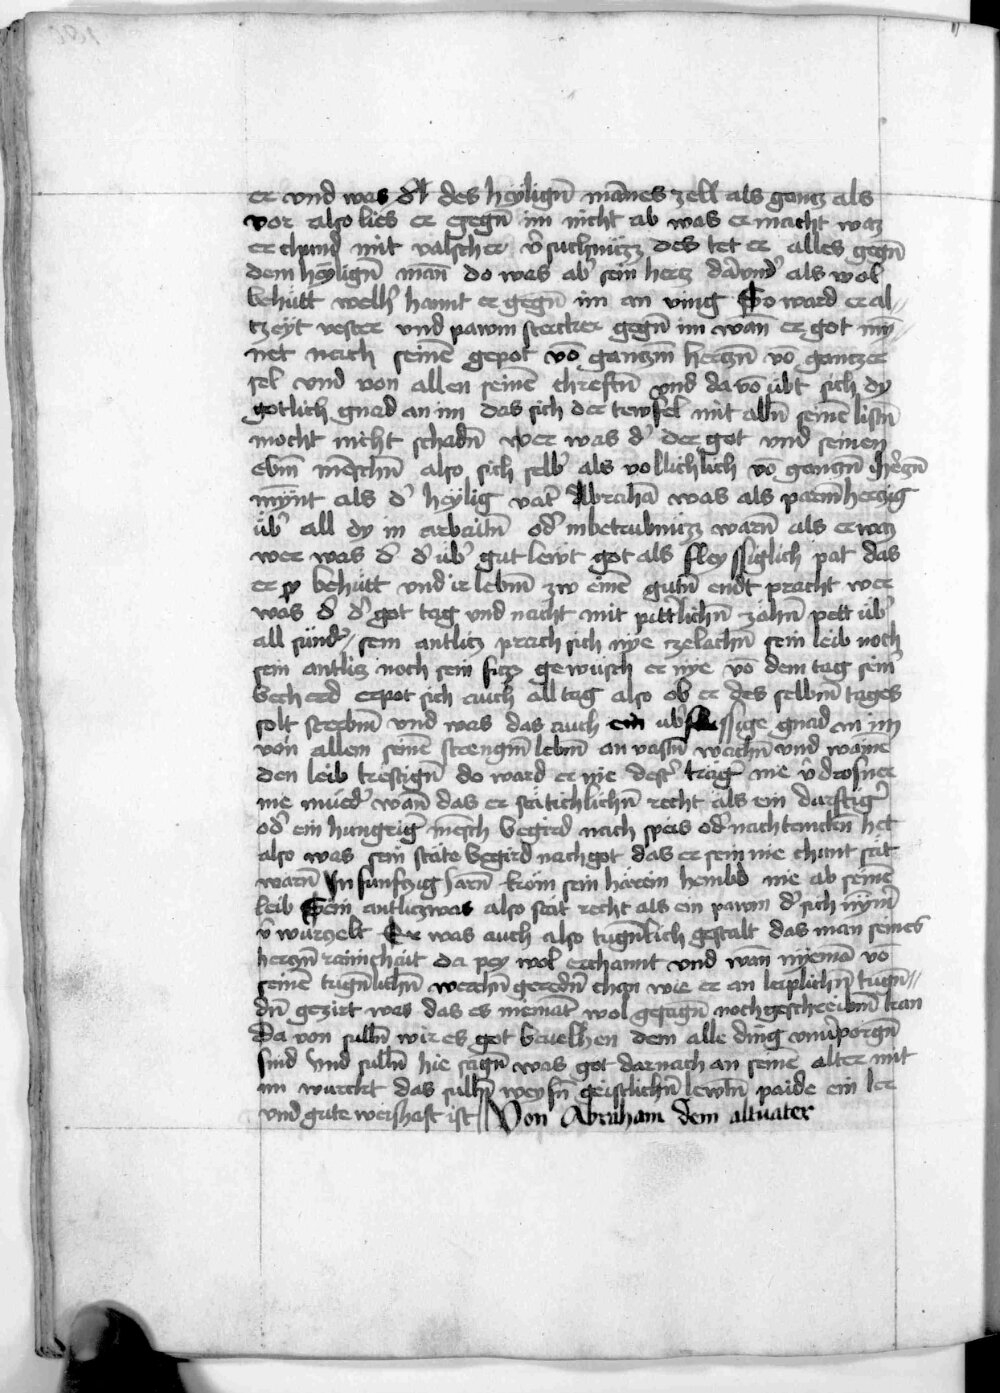 er vnd was dˀ des heyligñ mānes zell als gantz als
vor also lies er gegñ im nicht ab was er macht waz
er chund mit valscher v̄suchnüzz des tet er alles gegñ
dem heyligñ mañ do was abˀ sein hertz darundˀ als wol
behütt welhˀ hannt er gegñ im an ving So ward er al⸗
tzeyt vester vnd pawm stercker gegñ im wañ er got my̅⸗
net nach seinē gepot vō gantzm hertzñ vō gantzer
sel vnd von allen seinē chreftñ vnd da vō übt sich dy
gotlich gnad an im das sich der tewfel mit alln̄ seinē listñ
mocht nicht schadñ wer was dˀ der got vnd seinen
ebm̄ mēschn̄ also sich selbˀ als vollichlich vō gantzñ hˀtzn̄
mynt als dˀ heylig vatˀ Abrahā was als parmhertzig
übˀ all dy in arbaitñ odˀ in betrubnüzz warñ als er waz
wer was dˀ dˀ übˀ gut lewt got als fleyssiglich pat das
er sy behütt vnd ir lebm̄ zw einē gutñ endt pracht wer
was dˀ dˀ got tag vnd nacht mit pittˀlichñ zähñ pett übˀ
all sündˀ / sein antlitz prach sich nye tzelachñ sein leib noch
sein antlitz noch sein füzz gewusch er nye vō dem tag seinˀ
becherd er pot sich auch all tag also ob er des selbm̄ tages
solt sterbm̄ vnd was das auch ein übˀflüssige gnad an im
von allem seinē strengm̄ lebm̄ an vastñ wachñ vnd wainē
den leib kestigñ do ward er nie destˀ trägˀ nie v̄drosner
nie müedˀ wañ das er stätichlichñ recht als ein durstigˀ
odˀ ein hungrigˀ mēsch begird nach speis odˀ nach trinckñ het
also was sein stäte begird nach got das er sein nie chunt sat
werñ In funfzig Jarñ kom sein härein hembd nie ab seinē
leib Sein antlicz was also stät recht als ein pawm dˀ sich nymˀ
v̄würtzelt Er was auch also tugñtlich gestalt das man seines
hertzñ rainichait da pey wol erchannt vnd wañ nyemā vō
seinē tugñtlichñ werchñ geredñ chan wie er an leiplichñ tugñ⸗
dñ gezirt was das es niemāt wol gesagñ noch geschreibm̄ kan
Da von sullñ wir es got beuelhen dem alle ding vnuˀporgñ
sind Vnd sullñ hie sagñ was got darnach an seinē alter mit
im wurckt das sullñ weysñ geistlichñ lewtñ paide ein ler
vnd gute weishaft ist / Von Abraham dem altuater